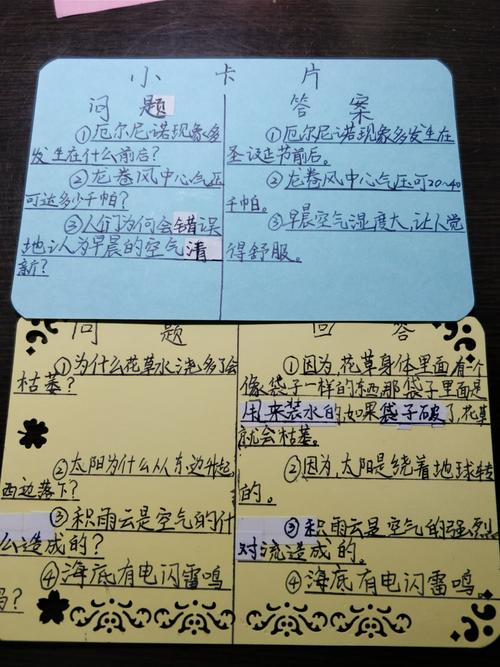 小卡片
问题
①厄尔尼诺现象多
发生在什么前后?
②龙卷风中心气压
可达多少千帕?
③人们为何会错误
地认为早晨的空气清
新?
答案
①厄尔尼诺现象多发生在
圣诞节前后。
②龙卷风中心气压可20~40
千帕。
③早晨空气湿度大,让人觉
得舒服。
问题
①为什么花草水浇多了会
枯萎?
②太阳为什么从东边升起,
西边落下?
③积雨云是空气的什
么造成的?
④海底有电闪雷鸣
吗?
回答
①因为,花草身体里面有一个
像袋子一样的东西,那袋子里面是
用来装水的,如果袋子破了,花草
就会枯萎。
②因为,太阳是绕着地球转
的。
③积雨云是空气的强烈
对流造成的。
④海底有电闪雷鸣。